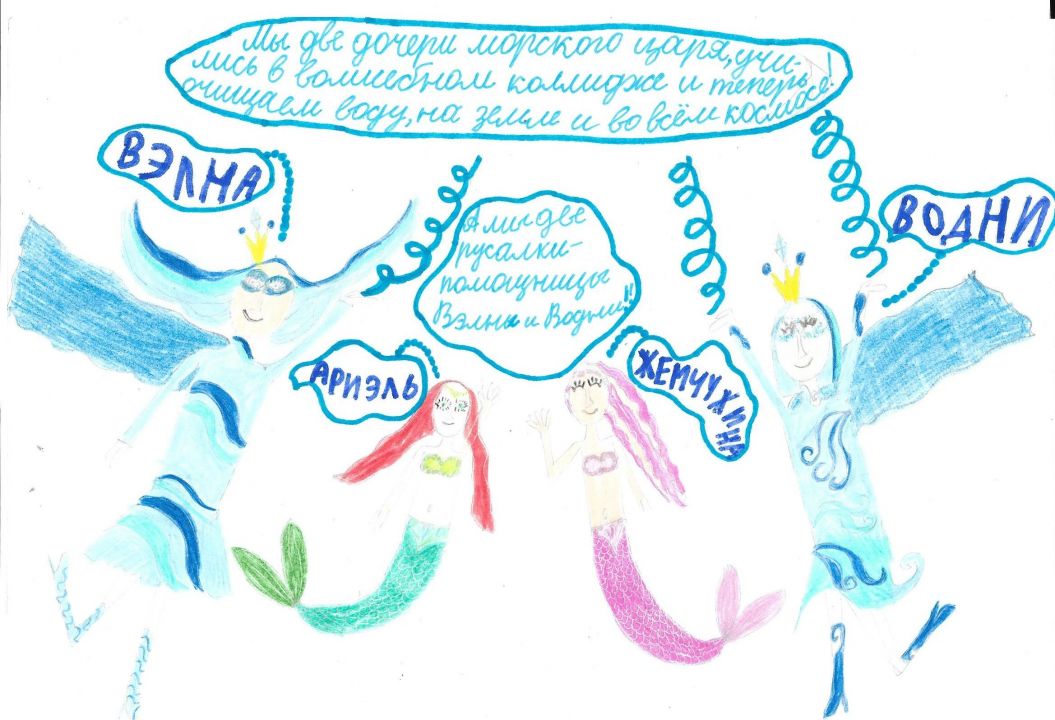 Мы две дочери морского царя, учи-
лись в волшебном коллидже и теперь
очищаем воду, на земле и во всём космосе!
ВЭЛНА
ВОДНИ
А мы две
русалки-
помощницы
Вэлны и Водни!!
АРИЭЛЬ
ЖЕМЧУЖИНА